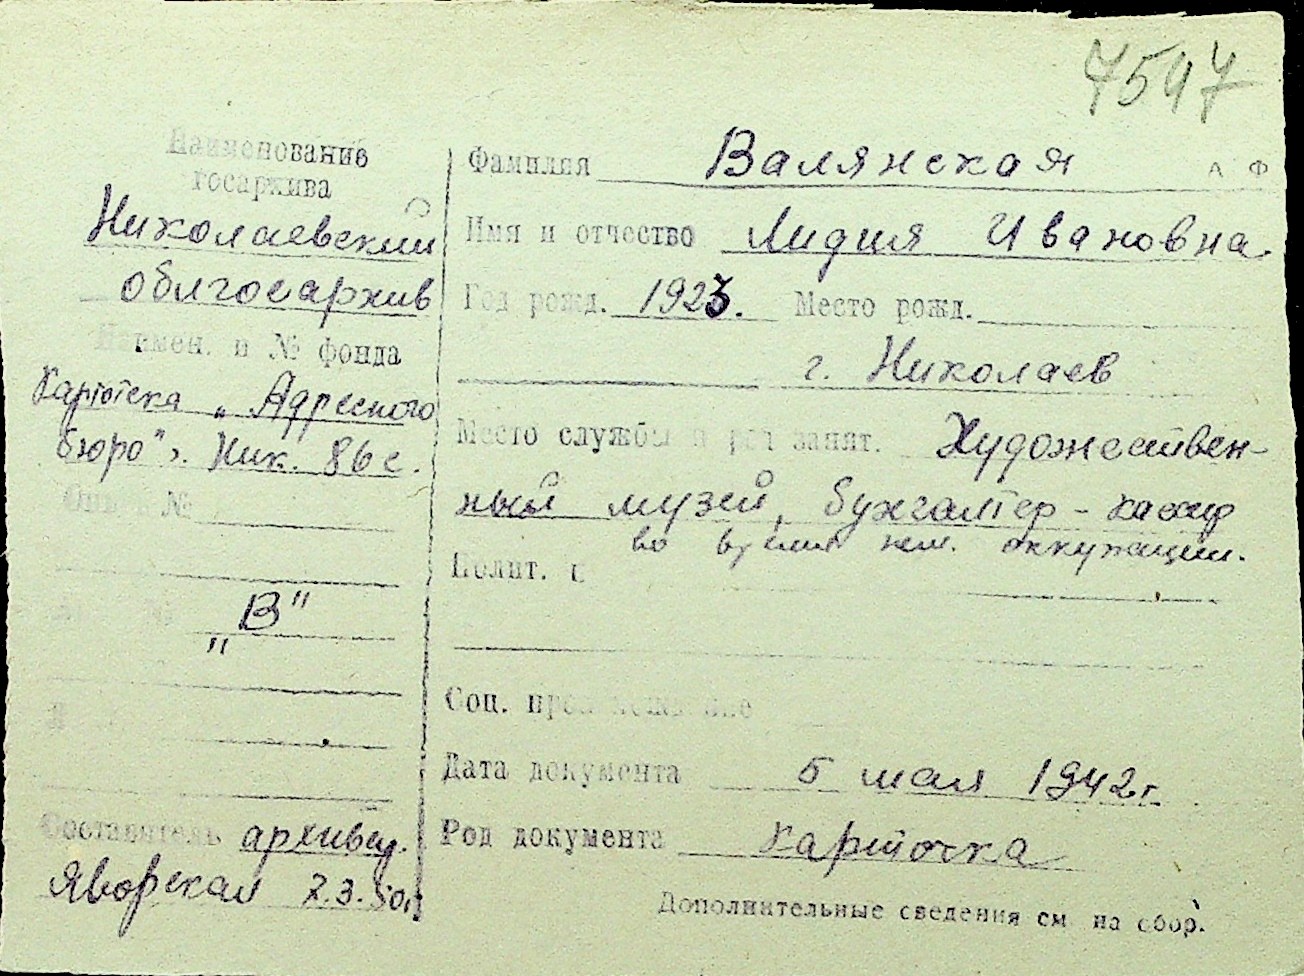 7597
Наименование
госархива
Николаевский
облгосархив
Наимен. и № фонда
Картотека „Адресного
бюро" г. Ник. 86 с.
Опись №
„В"
Составитель архивар.
Яворская 7.3.50г.
Фамилия Валянская А Ф
Имя и отчество Лидия Ивановна
Год рожд. 1923. Место рожд.
г. Николаев
Место службы и род занят. Художествен-
ный музей, бухгалтер-кассир
во время нем. оккупации.
Полит.
Соц. происхождение
Дата документа 5 мая 1942 г.
Род документа карточка
Дополнительные сведения см на обор.